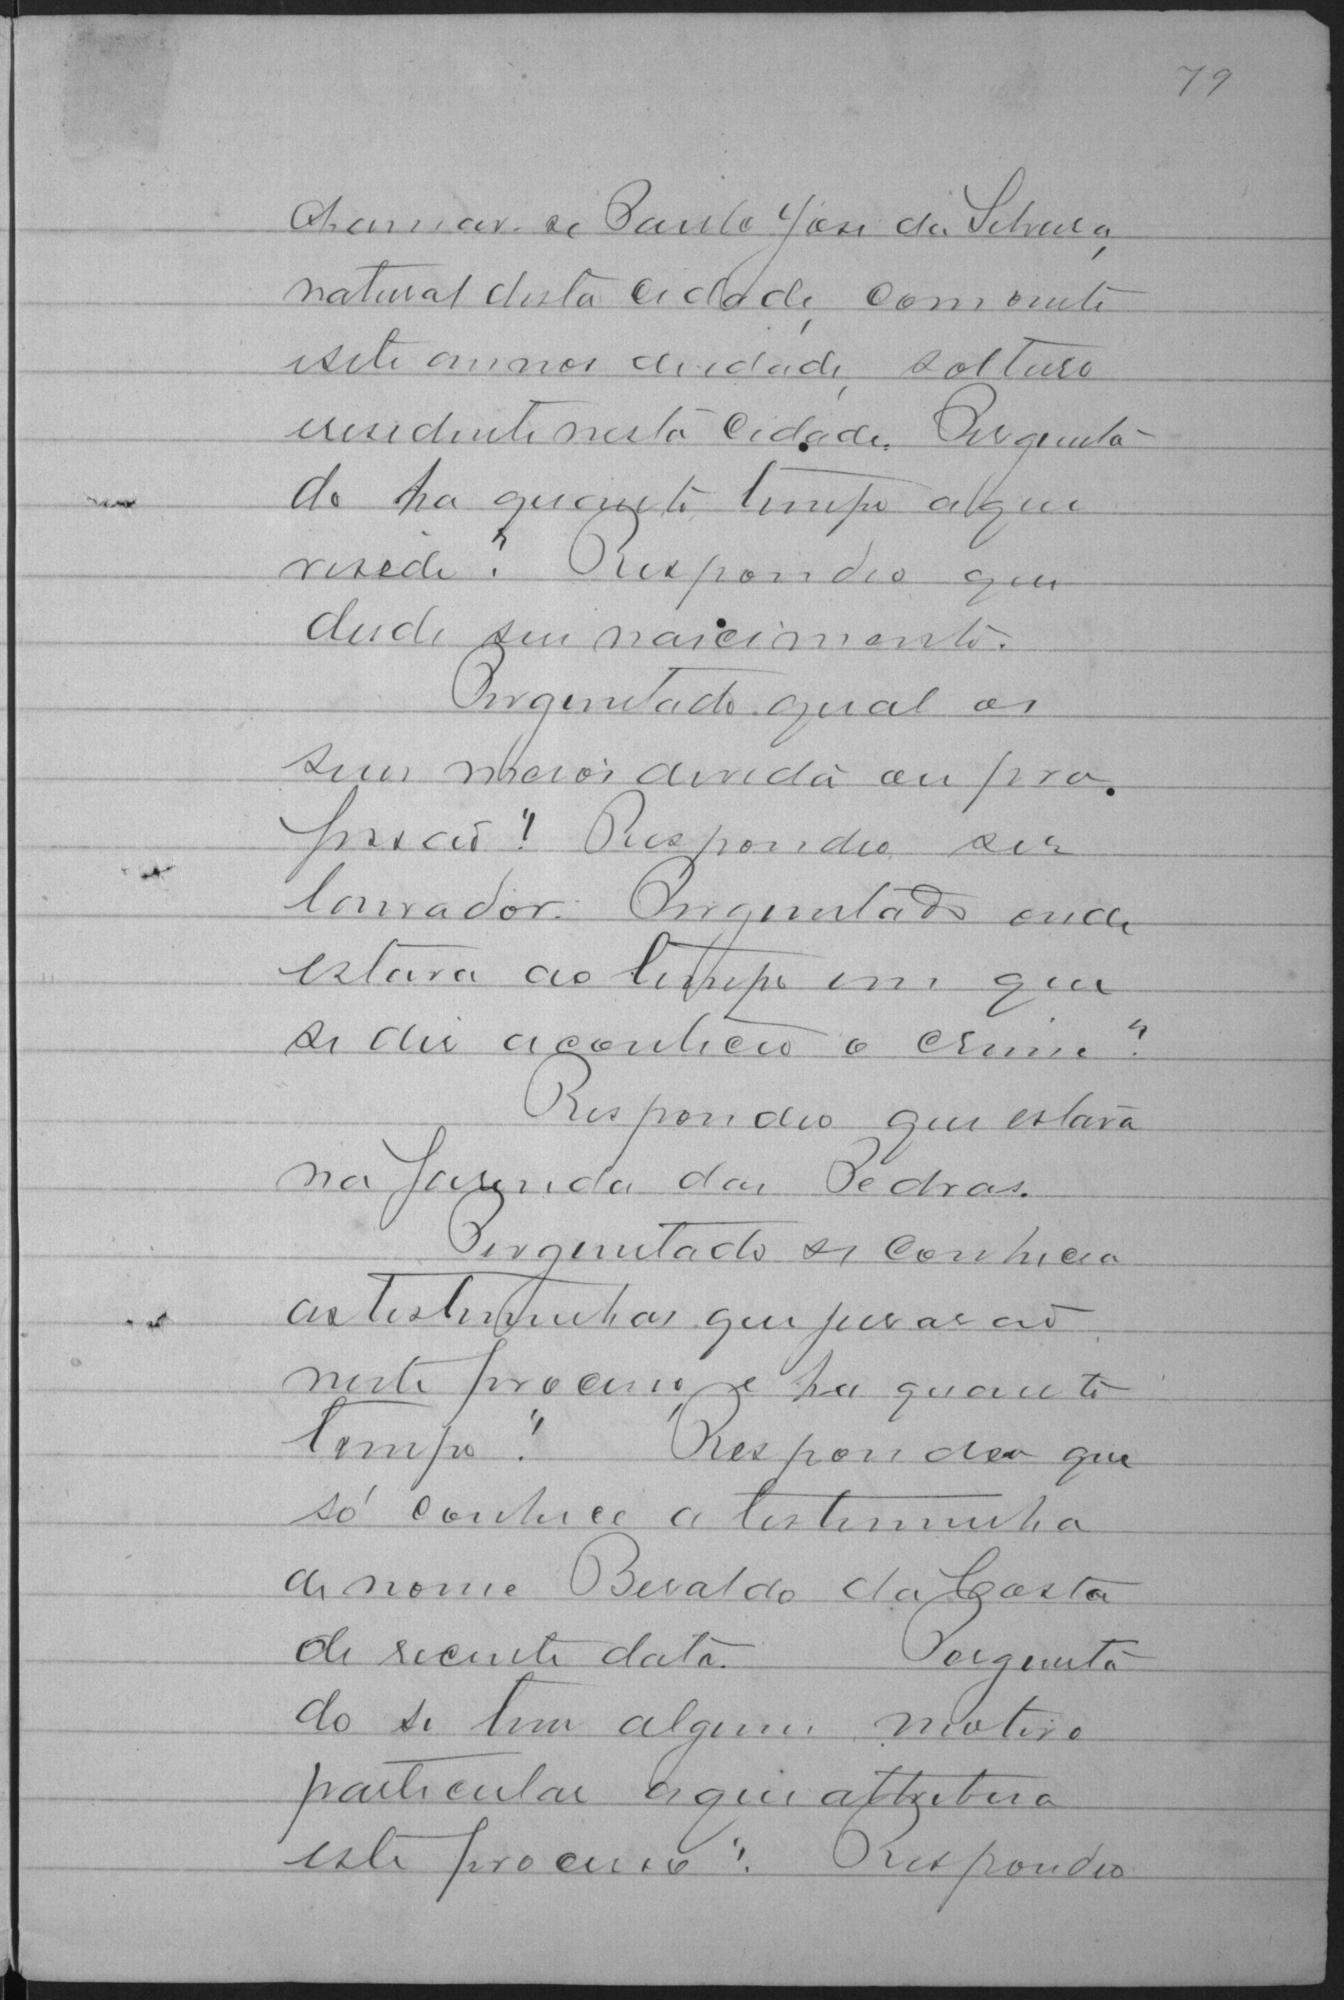 79
chamar-se Paulo José da Silveira,
natural desta cidade, com vinte
e sete annos de idade, solteiro
e residente nesta cidade. Pergunta
do ha quanto tempo aqui
reside? Respondeo que
desde seu nascimento.
Perguntado qual os
seus meios de vida ou pro-
fissão? Respondeo ser
lavrador. Perguntado onde
estava ao tempo em que
se diz aconteceo o crime?
Respondeo que estava
na fazenda das Pedras.
Perguntado se conhecia
as testemunhas que jurarão
neste processo, e ha quanto
tempo? Respondeo que
só conhece a testemunha
de nome Beraldo da Costa
de recente data. Pergunta
do se tem algum motivo
particular a que attribua
este processo? Respondeo